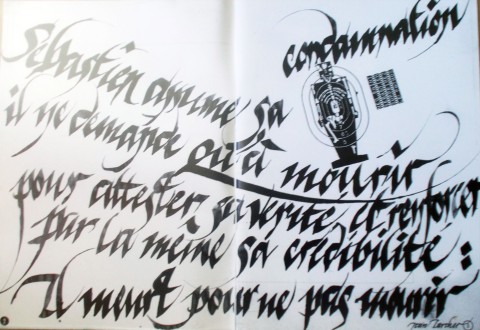 Sébastien assume sa condamnation
il ne demande qu'à mourir
pour attester sa vérité et renforcer
par la même sa crédibilité :
Il meurt pour ne pas mourir